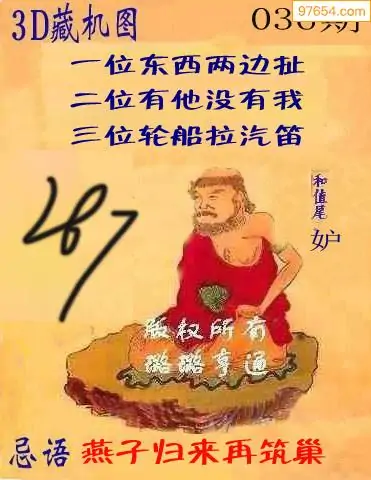 97654.com
3D藏机图
一位东西两边扯
二位有他没有我
三位轮船拉汽笛
和值尾
妒
版权所有
璐璐亨通
忌语 燕子归来再筑巢